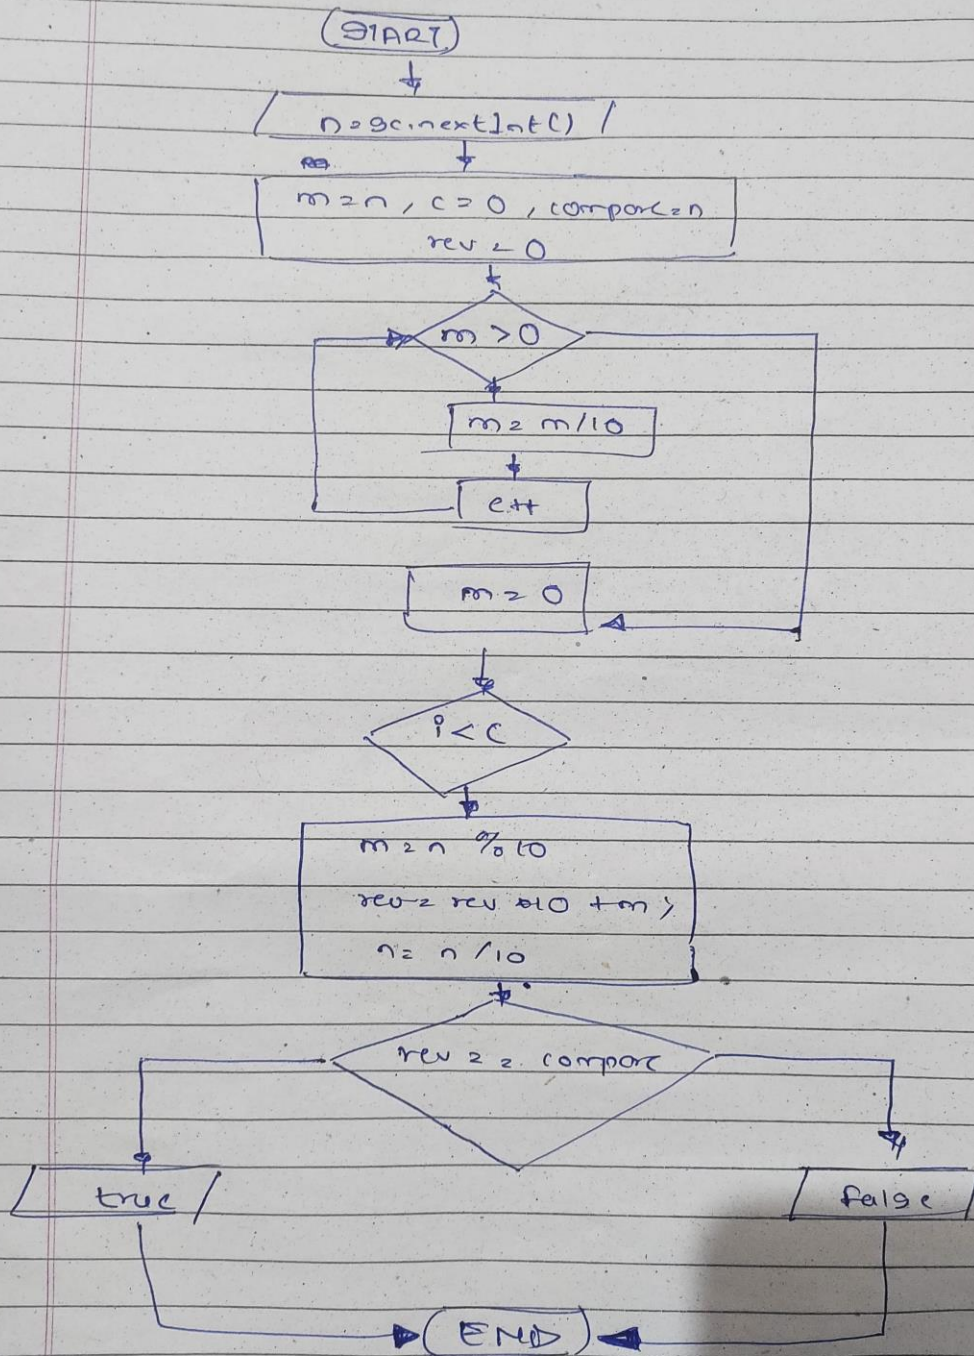 START
n=sc.nextInt()
m=n, c=0, compare=n
rev=0
m>0
m=m/10
c++
m=0
i<c
m=n%10
rev=rev*10+m;
n=n/10
rev==compare
true
false
END